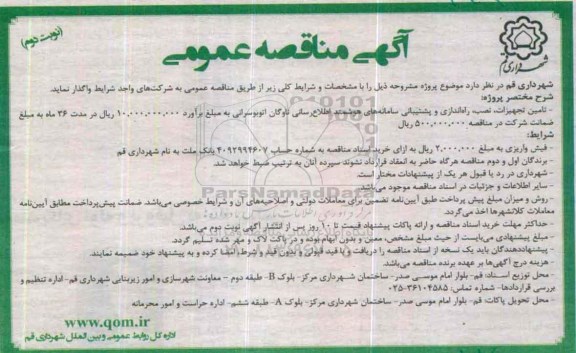 (نوبت دوم)
آگهی مناقصه عمومی
شهرداری قم
شهرداری قم در نظر دارد موضوع پروژه مشروحه ذیل را با مشخصات و شرایط کلی زیر از طریق مناقصه عمومی به شرکت‌های واجد شرایط واگذار نماید.
شرح مختصر پروژه:
- تامین تجهیزات، نصب، راه‌اندازی و پشتیبانی سامانه‌های هوشمند اطلاع‌رسانی ناوگان اتوبوسرانی به مبلغ برآورد ۱۰,۰۰۰,۰۰۰,۰۰۰ ریال در مدت ۳۶ ماه به مبلغ
ضمانت شرکت در مناقصه ۵۰۰,۰۰۰,۰۰۰ ریال
شرایط:
- فیش واریزی به مبلغ ۲,۰۰۰,۰۰۰ ریال به ازای خرید اسناد مناقصه به شماره حساب ۴۰۹۲۹۹۴۶۰۷ بانک ملت به نام شهرداری قم
- برندگان اول و دوم مناقصه هرگاه حاضر به انعقاد قرارداد نشوند سپرده آنان به ترتیب ضبط خواهد شد.
- شهرداری در رد یا قبول هر یک از پیشنهادات مختار است.
- سایر اطلاعات و جزئیات در اسناد مناقصه موجود می‌باشد.
- روش و میزان مبلغ پیش پرداخت طبق آیین‌نامه تضمین برای معاملات دولتی و اصلاحیه‌های آن و شرایط خصوصی می‌باشد. ضمانت پیش‌پرداخت مطابق آیین‌نامه
معاملات کلانشهرها اخذ می‌گردد.
- حداکثر مهلت خرید اسناد مناقصه و ارائه پاکات پیشنهاد قیمت تا ۱۰ روز پس از انتشار آگهی نوبت دوم می‌باشد.
- مبلغ پیشنهادی می‌بایست از حیث مبلغ مشخص، معین و بدون ابهام بوده و در پاکت لاک و مهر شده تسلیم گردد.
- پیشنهاددهندگان باید یک نسخه از اسناد مناقصه را دریافت و با قید قبولی و بدون قید و شرط، امضا کرده و به پیشنهاد خود ضمیمه نمایند.
- هزینه درج آگهی‌ها بر عهده برنده مناقصه می‌باشد.
- محل توزیع اسناد: قم- بلوار امام موسی صدر- ساختمان شهرداری مرکز- بلوک B- طبقه دوم – معاونت شهرسازی و امور زیربنایی شهرداری قم- اداره تنظیم و
بررسی قراردادها- شماره تماس: ۳۶۱۰۴۵۸۵-۰۲۵
- محل تحویل پاکات: قم- بلوار امام موسی صدر- ساختمان شهرداری مرکز- بلوک A- طبقه ششم- اداره حراست و امور محرمانه
www.qom.ir
اداره کل روابط عمومی و بین الملل شهرداری قم
ParsNamadData